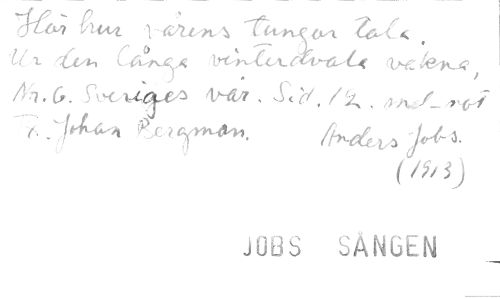 Hör hur vårens tungor tala.
Ur den långa vinterdvala vakna,
Nr. 6. Sveriges vår. Sid. 12. mel-not
T. Johan Bergman. Anders Jobs.
(1913)
JOBS SÅNGEN